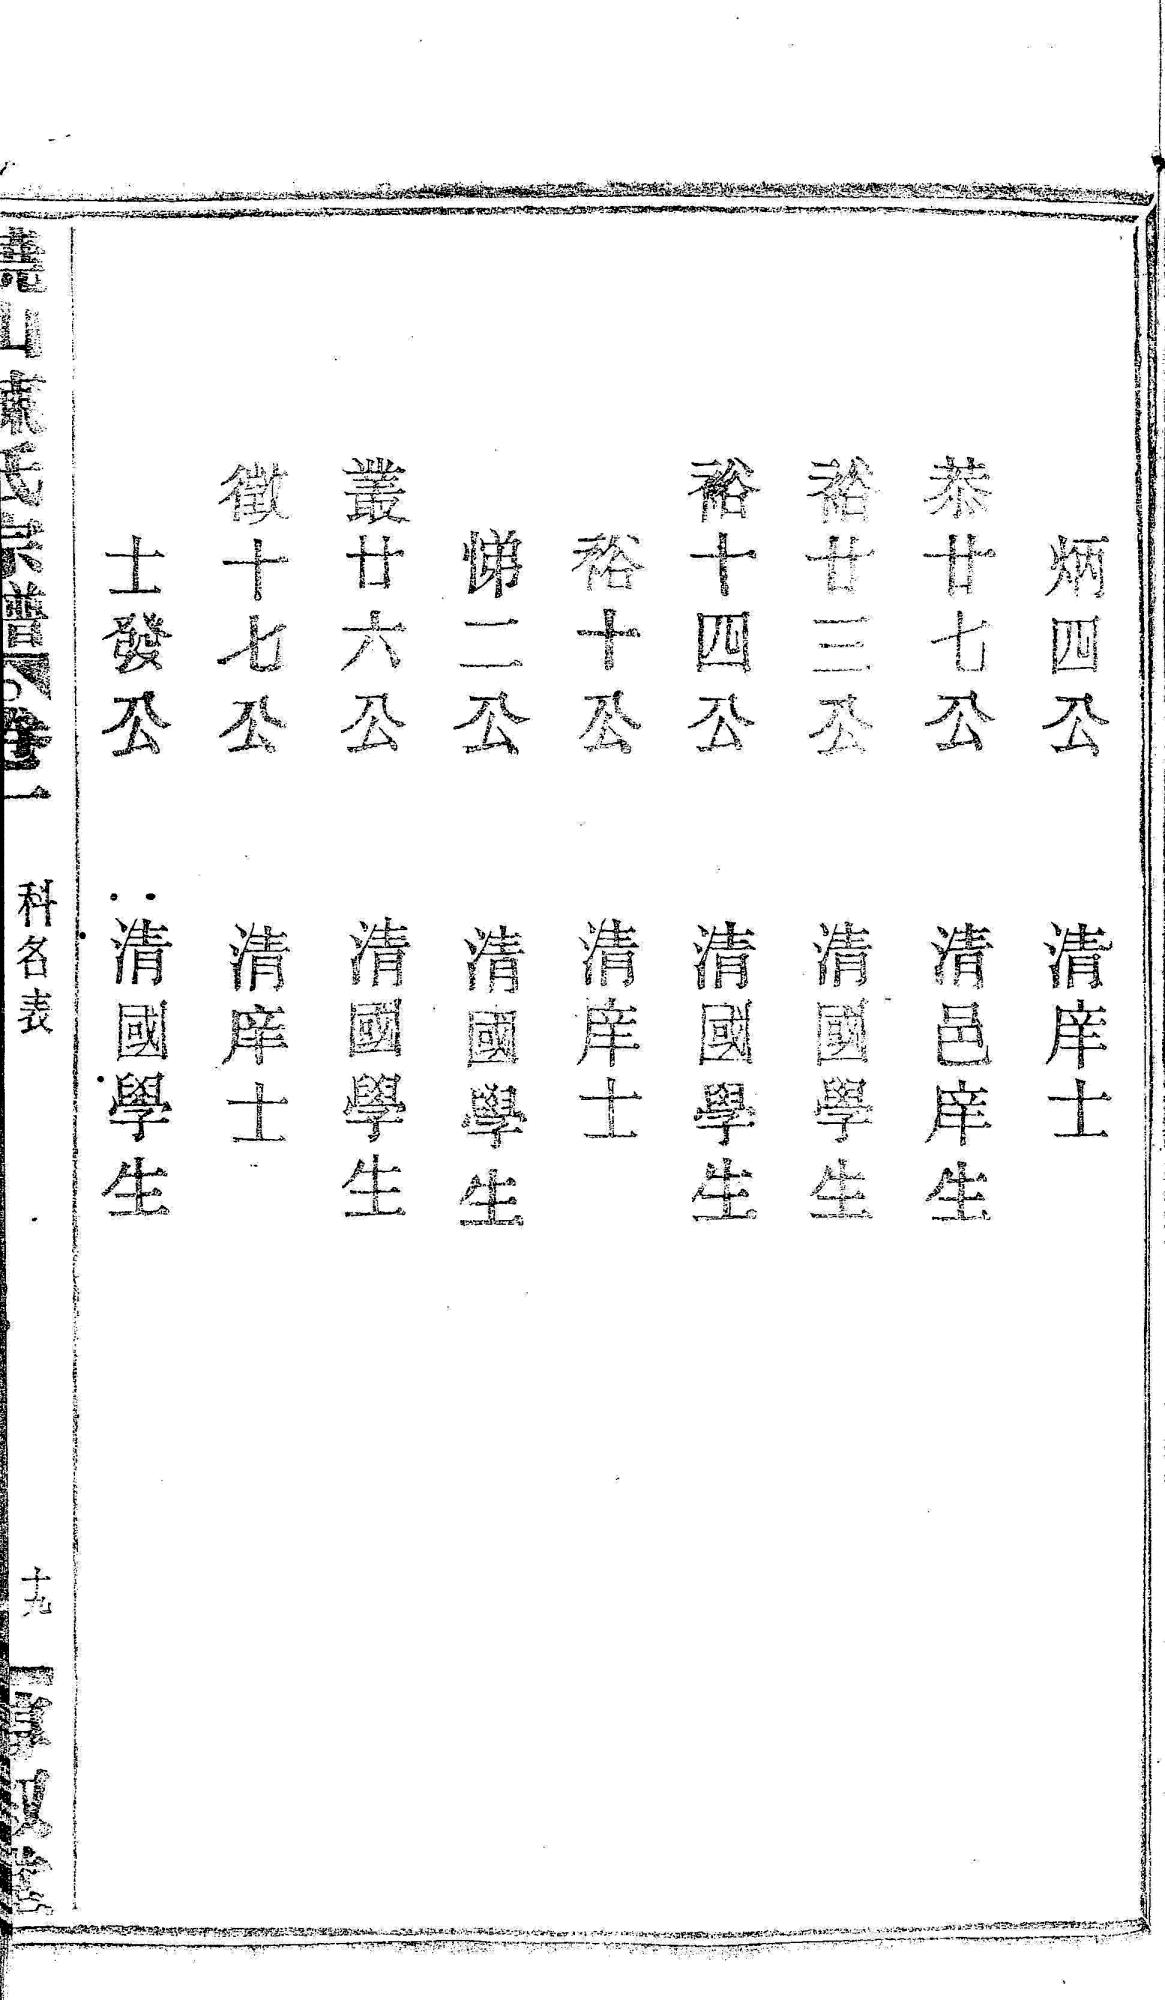 炳四公 清庠士
恭廿七公 清邑庠生
裕廿三公 清國學生
裕十四公 清國學生
裕十公 清庠士
悌二公 清國學生
叢廿六公 清國學生
徵十七公 清庠士
士發公 清國學生
山陳氏宗譜 卷一 科名表 十九